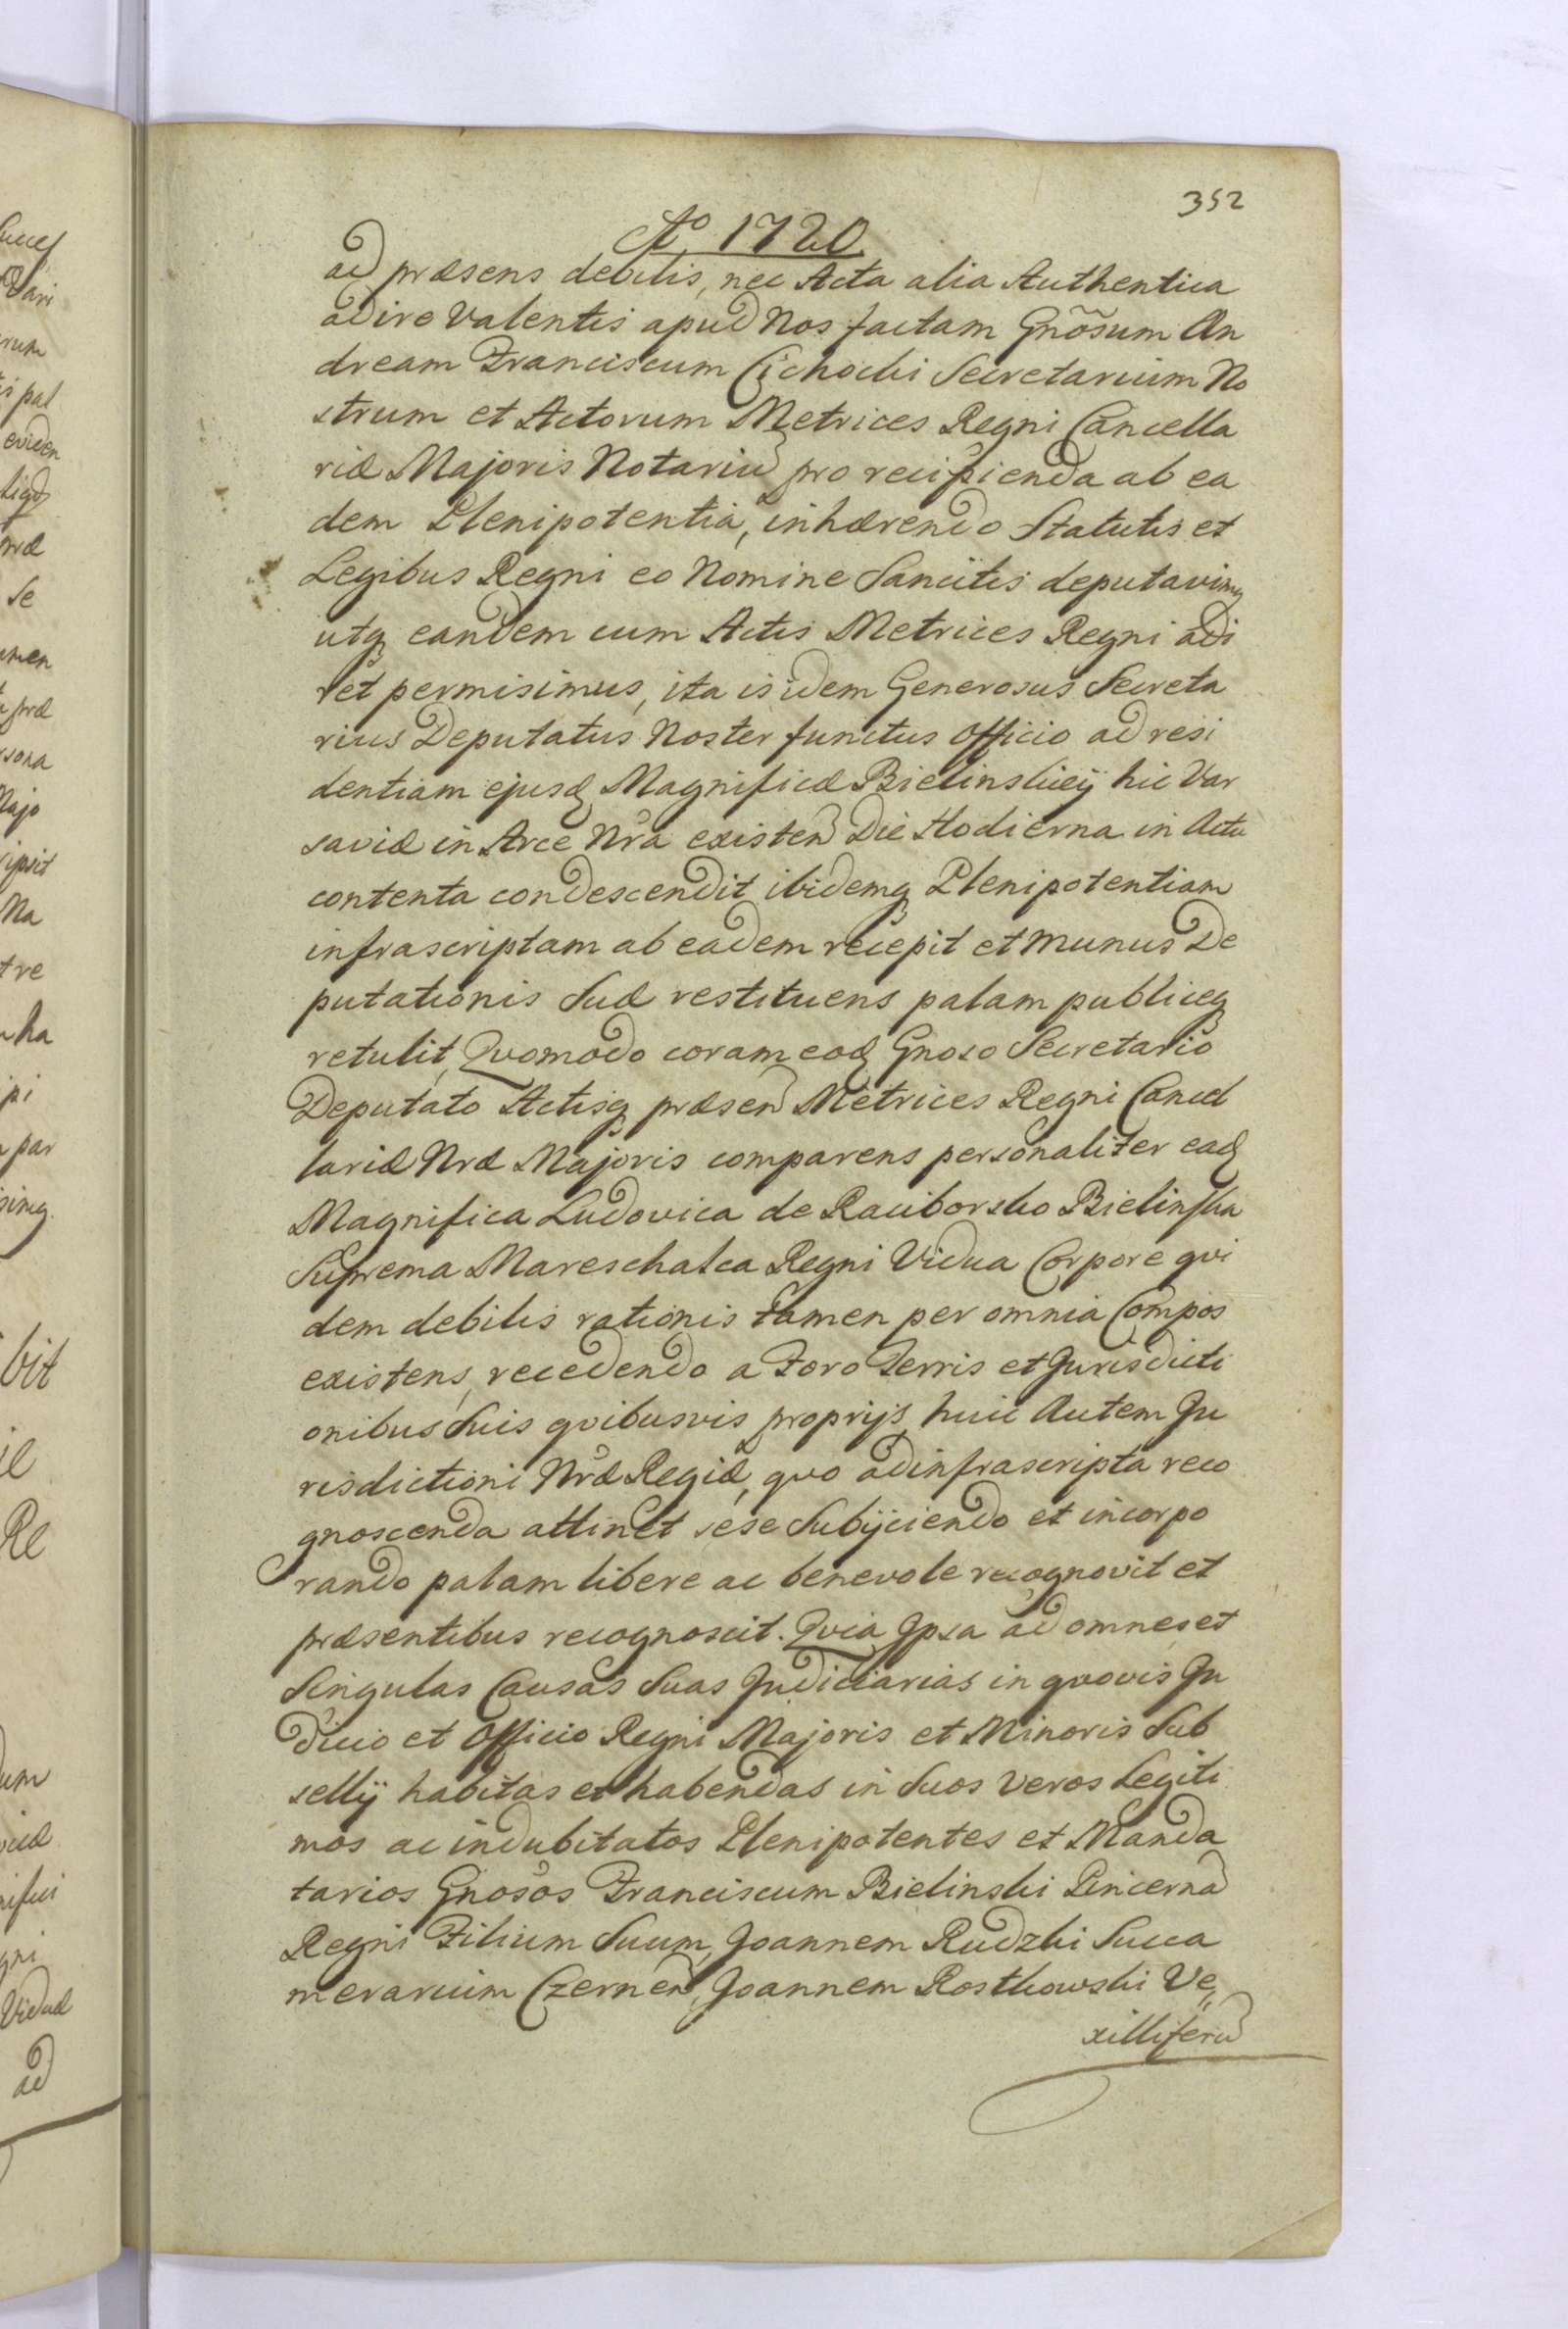 352
Aº 1720
ad præsens debilis, nec Acta alia Authentica
adire Valentis apud Nos factam Gnõsum An
dream Franciscum Cichocki Secretarium No
strum et Actorum Metrices Regni Cancella
riæ Majoris Notariũ pro recipienda ab ea
dem Plenipotentia, inhærendo Statutis et
Legibus Regni eo Nomine Sancitis deputavimq
utq eandem cum Actis Metrices Regni adi
ret permisimus, ita is idem Generosus Secreta
rius Deputatus Noster functus Officio ad resi
dentiam ejusd Magnificæ Bielinskiey hic Var
saviæ in Arce Nra existen Die Hodierna in Actu
contenta condescendit ibidemq Plenipotentiam
infrascriptam ab eadem recepit et munus De
putationis Suæ restituens palam publiceq
retulit, Quomodo coram eod Gnoso Secretario
Deputato Actisq præsen Metrices Regni Cancel
lariæ Nræ Majoris comparens personaliter ead
Magnifica Ludovica de Raciborsko Bielinska
Suprema Mareschalca Regni Vidua Corpore qvi
dem debilis rationis tamen per omnia Compos
existens, recedendo a Foro Terris et Jurisdicti
onibus Suis qvibusvis proprijs, huic Autem Ju
risdictioni Nræ Regiæ, qvo ad infrascripta reco
gnoscenda attinet sese Subijciendo et incorpo
rando palam libere ac benevole recognovit et
præsentibus recognoscit. Qvia Ipsa ad omnes et
Singulas Causas Suas Judiciarias in qvovis Ju
dicio et Officio Regni Majoris et Minoris Sub
sellij habitas et habendas in Suos Veros Legiti
mos ac indubitatos Plenipotentes et Manda
tarios Gnosos Franciscum Bielinski Pincernã
Regni Filium Suum, Joannem Rudzki Succa
merarium Czernen, Joannem Rostkowski Ve,,
xilliferũ